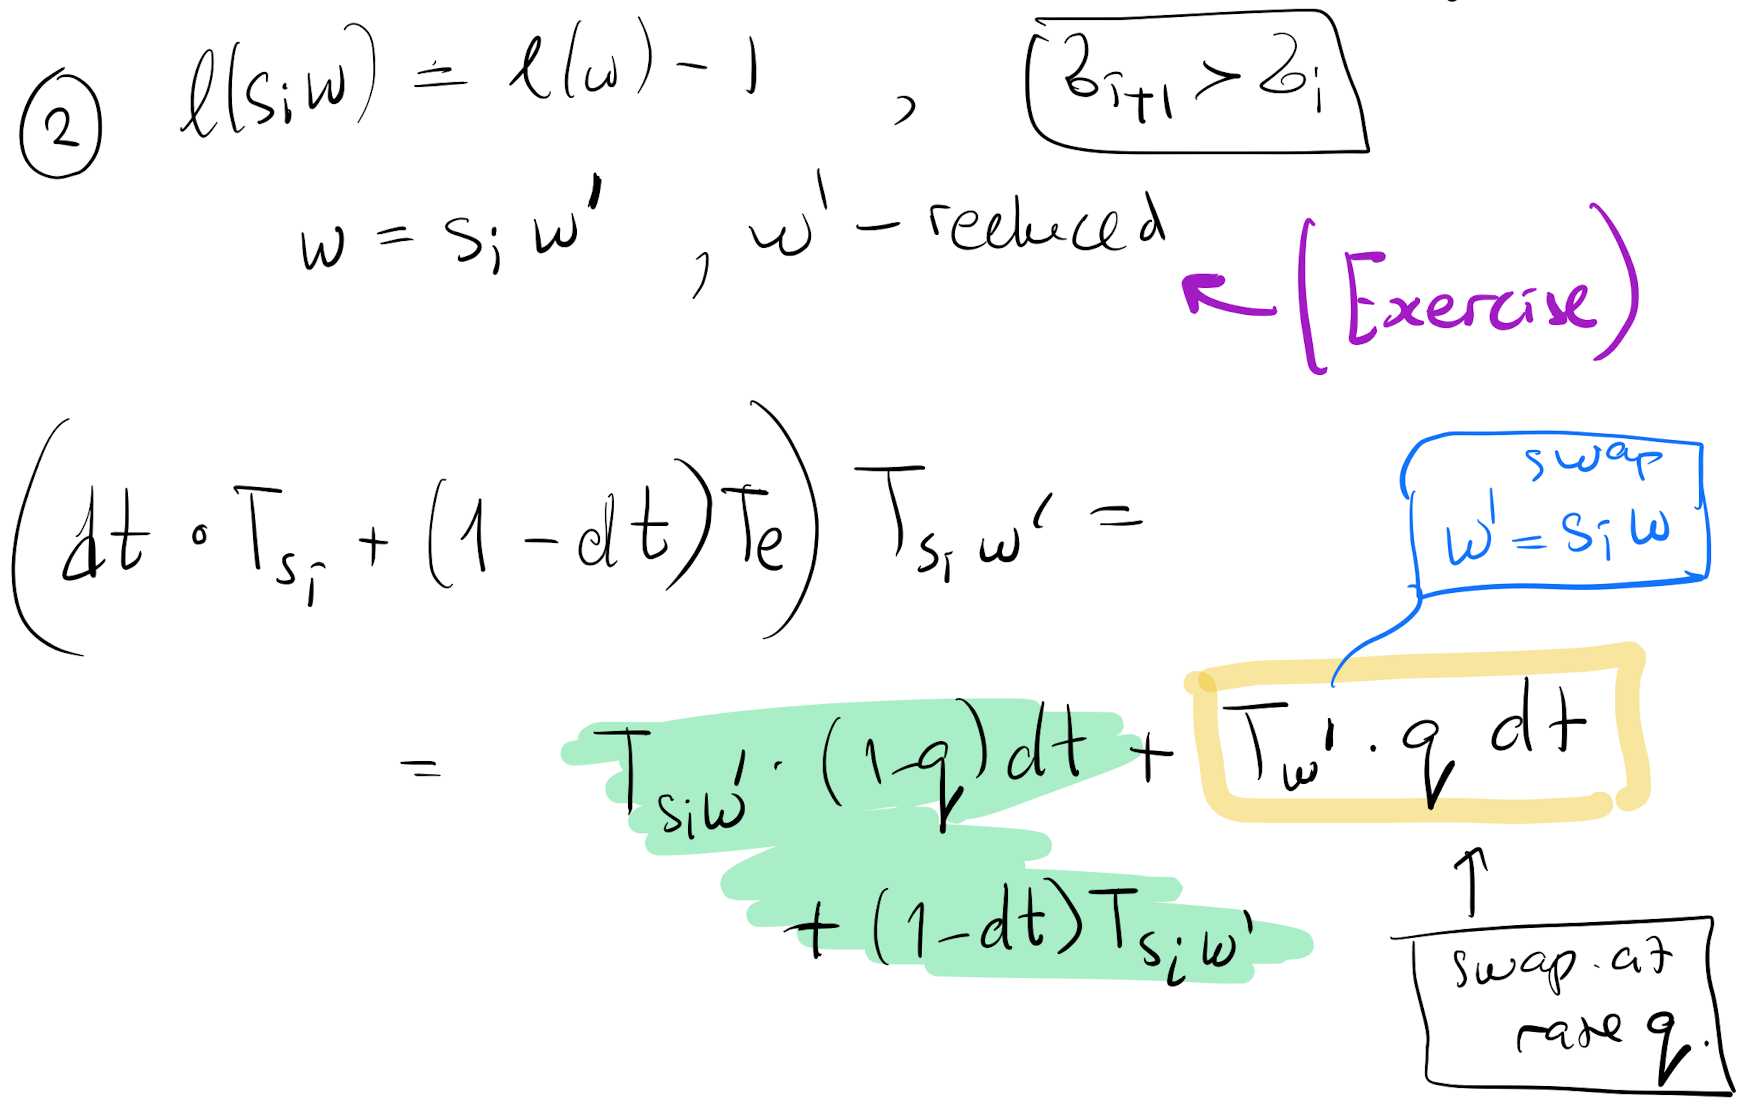 ② ℓ(sᵢw) = ℓ(w) − 1 , 3ᵢ₊₁ > 3ᵢ
w = sᵢ w' , w' – reduced
← (Exercise)
(dt · T_{sᵢ} + (1 − dt) T_e) T_{sᵢ w'} =
swap
w' = sᵢ w
= T_{sᵢw'} · (1−q) dt + T_{w'} · q dt
+ (1−dt) T_{sᵢ w'}
↑
swap at
rate q.